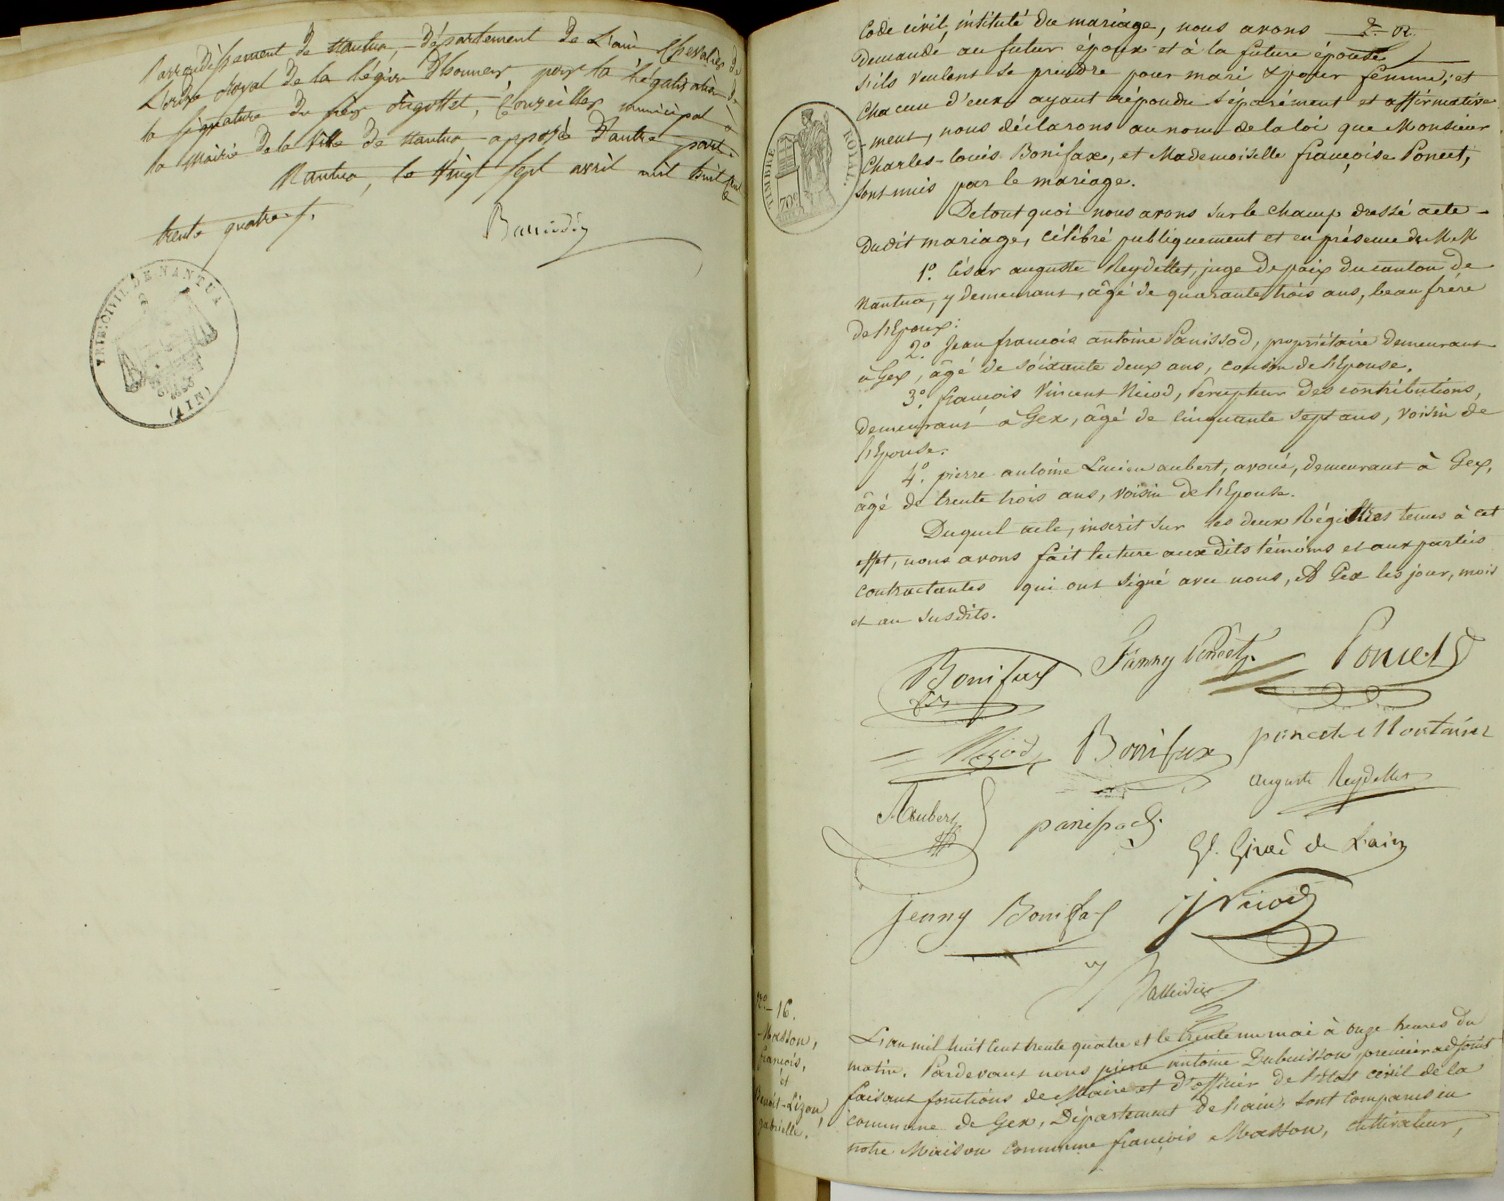 l'arrondissement de Nantua, Département de l'ain Chevalier de
L'ordre Royal de la légion d'honneur, pour la légalisation de
la signature du Conseiller municipal à
la Mairie de la Ville de Nantua, apposée d'autre part.
Nantua, le Vingt Sept avril mil huit
trente quatre.
TRIB. CIVIL DE NANTUA
(AIN)
TIMBRE ROYAL.
Code civil, intitulé du mariage, nous avons
Demandé au futur époux et à la future épouse
s'ils veulent se prendre pour mari & pour femme; et
chacun d'eux ayant répondu séparément et affirmative
-ment, nous déclarons au nom de la loi que Monsieur
Charles-Louis Bonifax, et Mademoiselle françoise Poncet,
sont unis par le mariage.
De tout quoi nous avons sur le champ dressé acte
Dudit mariage, célébré publiquement et en présence de M.M
1.o César auguste Reydellet, juge de paix du canton de
Nantua, y demeurant, âgé de quarante trois ans, beau frère
de l'Epoux:
2.o Jean françois antoine Panissod, propriétaire demeurant
à Gex, âgé de soixante deux ans, cousin de l'Epouse.
3.o françois Vincent Nicod, Percepteur des contributions,
demeurant à Gex, âgé de cinquante sept ans, voisin de
l'Epouse.
4.o pierre antoine Lucien aubert, avoué, demeurant à Gex,
âgé de trente trois ans, voisin de l'Epouse.
Duquel acte, inscrit sur les deux Régistres tenus à cet
effet, nous avons fait lecture aux dits témoins et aux parties
contractantes qui ont signé avec nous, A Gex les jour, mois
et an susdits.
Bonifax Fanny Poncet Poncet
Nicod Bonifax poncet Montanier
Auguste Reydellet
Aubert panissod
Girod de L'ain
Jenny Bonifax Nicod
N.o 16.
Masson,
françois,
et
Benoit-Lizon,
gabrielle.
L'an mil huit cent trente quatre et le trente un mai à onze heures du
matin. Pardevant nous pierre antoine Dubuisson premier adjoint
faisant fonctions de Maire et d'officier de l'état civil de la
commune de Gex, Département de l'ain, sont comparus en
notre Maison commune françois Masson, cultivateur,